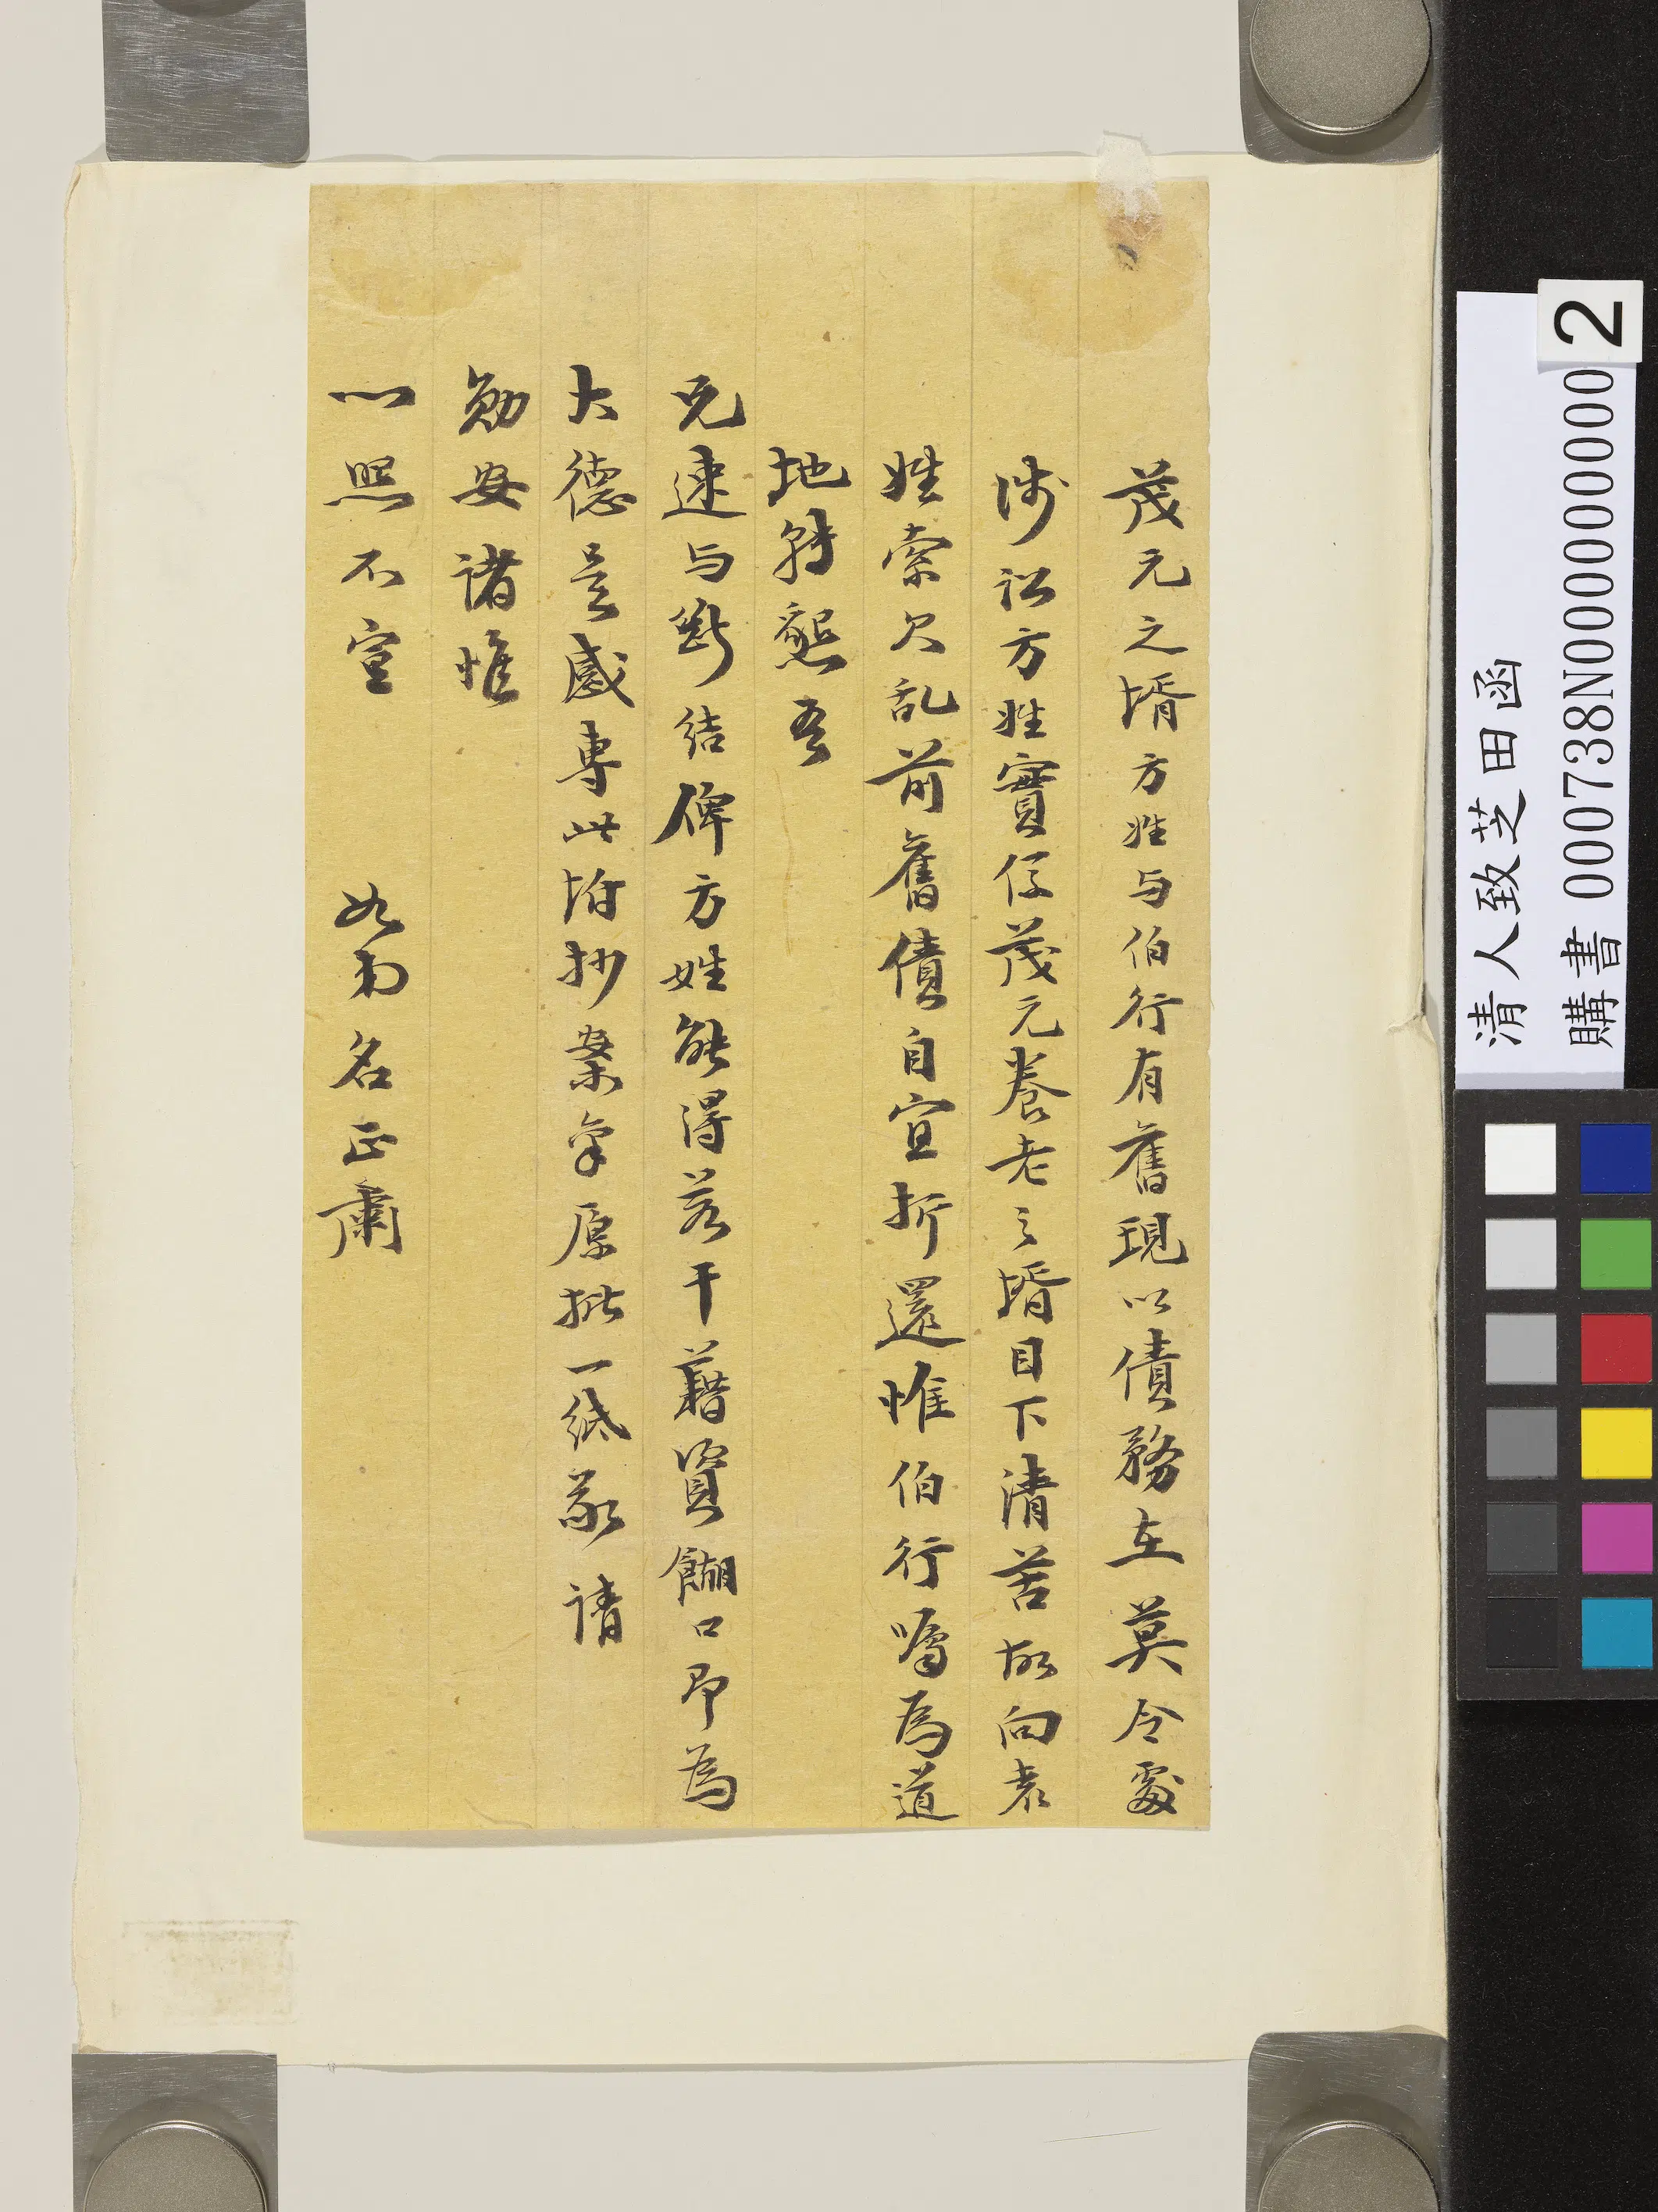 茂元之壻方姓与伯行有舊現以債務在莫令處
涉訟方姓實係茂元養老之壻目下清苦故向袁
姓索欠乱前舊債自宜折還惟伯行囑為道
地特懇吾
兄速与斷結俾方姓能得若干藉資餬口即為
大德是感專此坿抄案稟原批一紙敬請
勛安諸惟
心照不宣 如弟名正肅
清人致芝田函
購書 000738N000000000
2